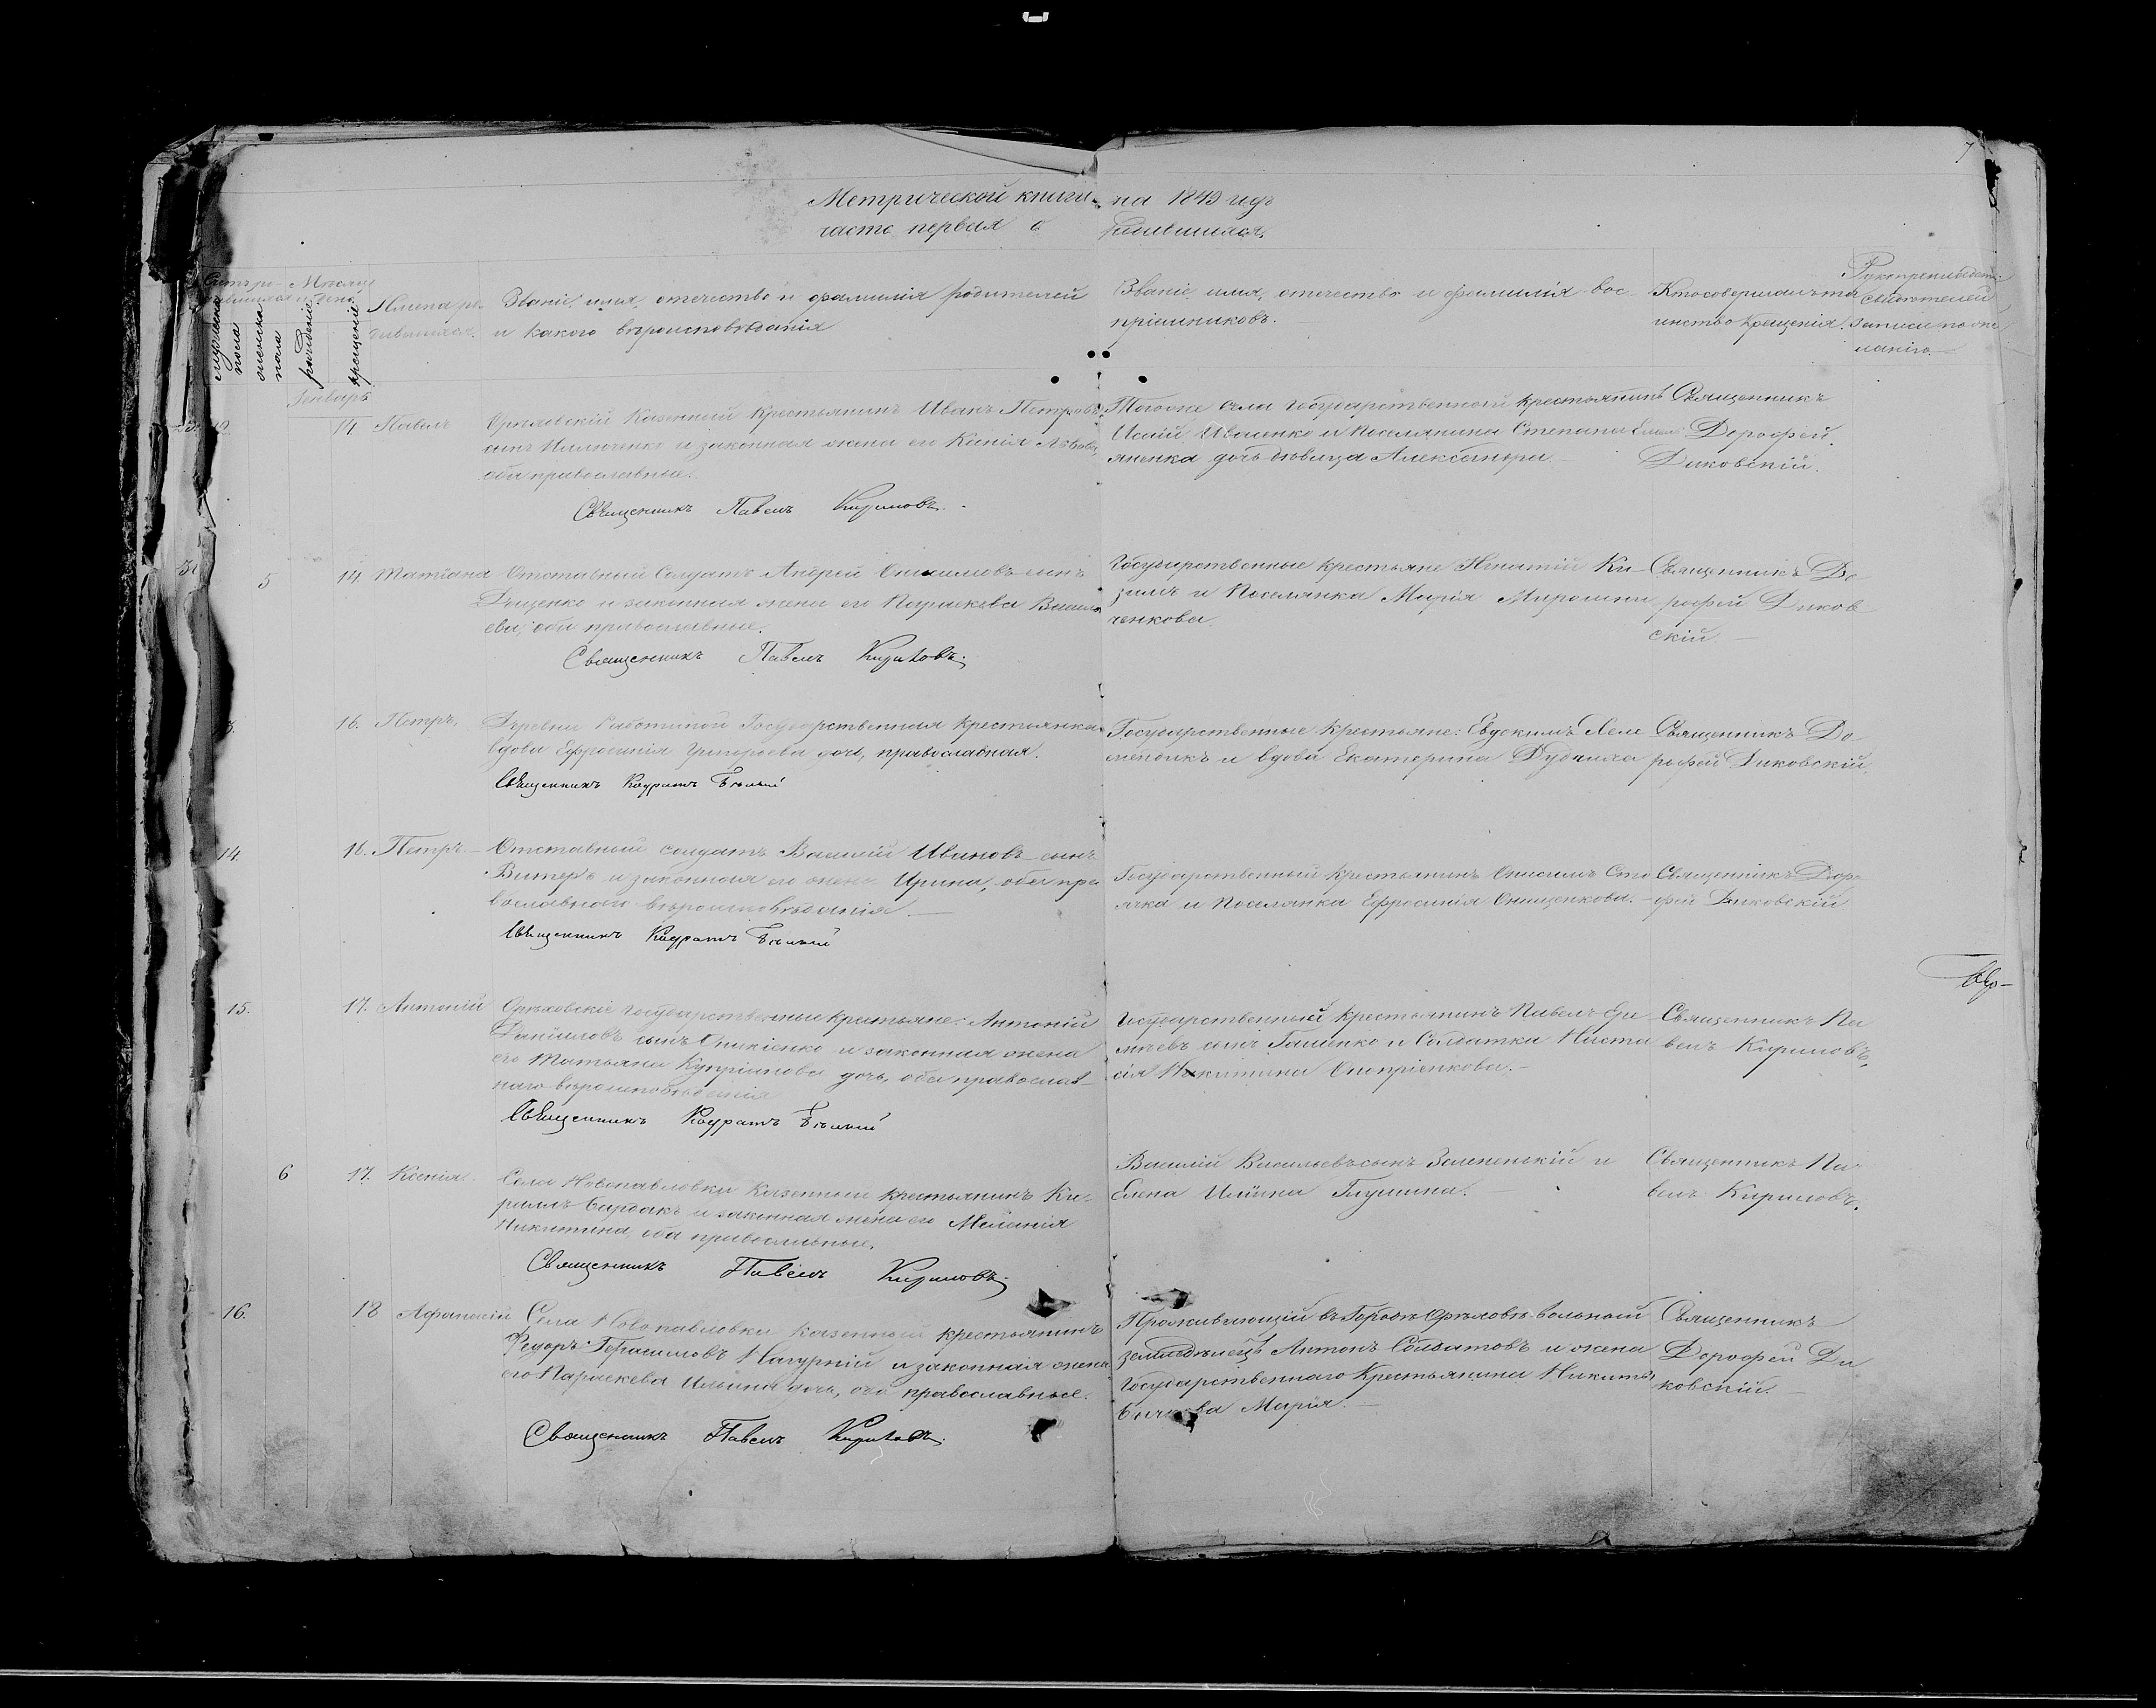 7
Метрической книги на 1849 годъ
часть первая о родившихся.
Счетъ родившихся
Мѣсяцъ и день
мужеска пола
женска пола
рожденія
крещенія
Имена родившихся.
Званіе, имя, отечество и фамилія родителей
и какого вѣроисповѣданія
Званіе, имя, отечество и фамилія вос-
пріемниковъ.
Кто совершалъ та
инство крещенія.
Рукоприкладство
свидѣтелей
записи по же
ланію.
Генварь
12. 14 Павелъ
Орѣховскій Казенный Крестьянинъ Иванъ Петровъ
сынъ и законная жена его Ксенія Львова,
оба православные.
Священникъ Павелъ Кириловъ.
Тогоже села государственный крестьянинъ
Исаій Иваненко и Поселянина Степана
дочь дѣвица Александра.
Священникъ
Дорофей
Диковскій.
5 14 Татіана
Отставный Солдатъ Андрей Онисимовъ сынъ
Дяценко и законная жена его Параскева Василь
ева, оба православные.
Священникъ Павелъ Кириловъ.
Государственные крестьяне Игнатій Ки-
зимъ и Поселянка Марія Мирошни
ченкова.
Священникъ До
рофей Диков
скій.
16. Петръ,
Деревни Работиной Государственная крестьянка
вдова Ефросинія Григорьева дочь, православная.
Священникъ Кодратъ Бѣлый
Государственные крестьяне: Евдокимъ Леме
мендикъ и вдова Екатерина
Священникъ До
рофей Диковскій.
14. 16. Петръ.
Отставный солдатъ Василій Ивановъ сынъ
Витеръ и законная его жена Ирина, оба пра
вославнаго вѣроисповѣданія.
Священникъ Кодратъ Бѣлый
Государственный крестьянинъ Онисимъ
и Поселянка Ефросинія Онищенкова.
Священникъ Доро
фей Диковскій
15. 17. Антоній
Орѣховскіе государственные крестьяне: Антоній
Даніиловъ сынъ Оникіенко и законная жена
его Татьяна Купріянова дочь, оба православ-
наго вѣроисповѣданія
Священникъ Кодратъ Бѣлый
Государственный крестьянинъ Павелъ
сынъ Гашенко и Солдатка Наста
сія Никитина Оноприенкова.
Священникъ Па
велъ Кириловъ.
6 17. Ксенія.
Села Новопавловки Казенный крестьянинъ Ки-
рилъ Бардакъ и законная жена его Меланія
Никитина, оба православные.
Священникъ Павелъ Кириловъ.
Василій Васильевъ сынъ Зелененькій и
Елена Ильина Глушина.
Священникъ Па-
велъ Кириловъ.
16. 18 Афанасій
Села Новопавловки Казенный крестьянинъ
Федоръ Герасимовъ Нагурній и законная жена
его Параскева Ильина дочь, оба православные.
Священникъ Павелъ Кириловъ.
Проживающій въ Городѣ Орѣховѣ вольный
земледѣлецъ Антонъ Солдатовъ и жена
Государственнаго Крестьянина Никиты
Марія.
Священникъ
Дорофей Ди
ковскій.